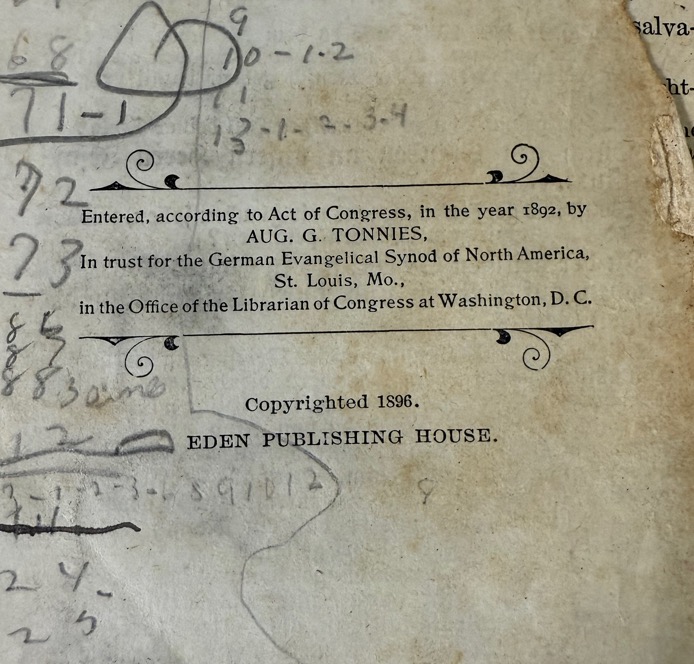 9
salva-
68
10-1-2
ht-
71-1
11
13-1-2-3-4
72
Entered, according to Act of Congress, in the year 1892, by
AUG. G. TONNIES,
73
In trust for the German Evangelical Synod of North America,
St. Louis, Mo.,
in the Office of the Librarian of Congress at Washington, D. C.
88
Copyrighted 1896.
12
EDEN PUBLISHING HOUSE.
8
24-
25